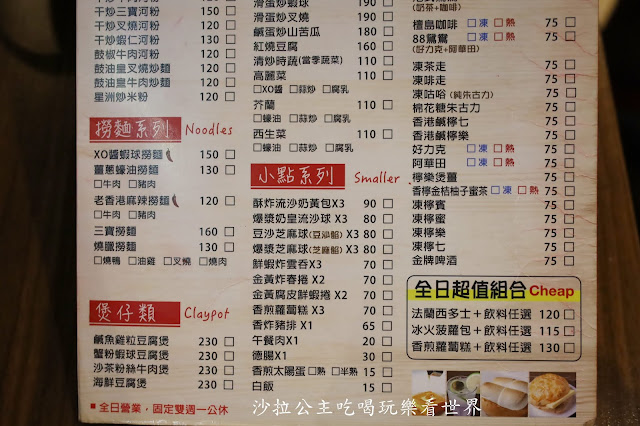 干炒三寶河粉 160 □
干炒叉燒河粉 □
干炒蝦仁河粉 130 □
鼓椒牛肉河粉 120 □
鼓油皇叉燒炒麵 120 □
鼓油皇牛肉炒麵 120 □
星洲炒米粉 120 □
撈麵系列 Noodles
XO醬蝦球撈麵 150 □
薑蔥蠔油撈麵 130 □
□牛肉 □豬肉
老香港麻辣撈麵 120 □
□牛肉 □豬肉
三寶撈麵 160 □
燒臘撈麵 130 □
□燒鴨 □油雞 □叉燒 □燒肉
煲仔類 Claypot
鹹魚雞粒豆腐煲 230 □
蟹粉蝦球豆腐煲 230 □
沙茶粉絲牛肉煲 230 □
海鮮豆腐煲 230 □
■全日營業，固定雙週一公休
滑蛋炒蝦球 190 □
滑蛋炒叉燒 □
鹹蛋炒山苦瓜 180 □
紅燒豆腐 160 □
清炒時蔬(當季蔬菜) 110 □
高麗菜 110 □
□XO醬 □蒜炒 □腐乳
芥蘭 110 □
□蠔油 □蒜炒 □腐乳
西生菜 110 □
□蠔油 □蒜炒 □腐乳
小點系列 Smaller
酥炸流沙奶黃包X3 90 □
爆漿奶皇流沙球X3 80 □
豆沙芝麻球(豆沙餡)X3 80 □
爆漿芝麻球(芝麻餡)X3 80 □
鮮蝦炸雲吞X3 70 □
金黃炸春捲X2 70 □
金黃腐皮鮮蝦捲X2 70 □
香煎蘿蔔糕X3 70 □
香炸豬排X1 65 □
午餐肉X1 20 □
德腸X1 30 □
香煎太陽蛋□熟□半熟 15 □
白飯 15 □
(奶茶+咖啡)
檀島咖啡 □凍□熱 75 □
88鴛鴦 □凍□熱 75 □
(好力克+阿華田)
凍茶走 75 □
凍啡走 75 □
凍咕咕(純朱古力) 75 □
棉花糖朱古力 75 □
香港鹹檸七 75 □
香港鹹檸樂 75 □
好力克 □凍□熱 75 □
阿華田 □凍□熱 75 □
檸樂煲薑 75 □
香檸金桔柚子蜜茶□凍□熱 75 □
凍檸賓 75 □
凍檸蜜 75 □
凍檸樂 75 □
凍檸七 75 □
金牌啤酒 75 □
全日超值組合Cheap
法蘭西多士+飲料任選 120 □
冰火菠蘿包+飲料任選 115 □
香煎蘿蔔糕+飲料任選 130 □
沙拉公主吃喝玩樂看世界